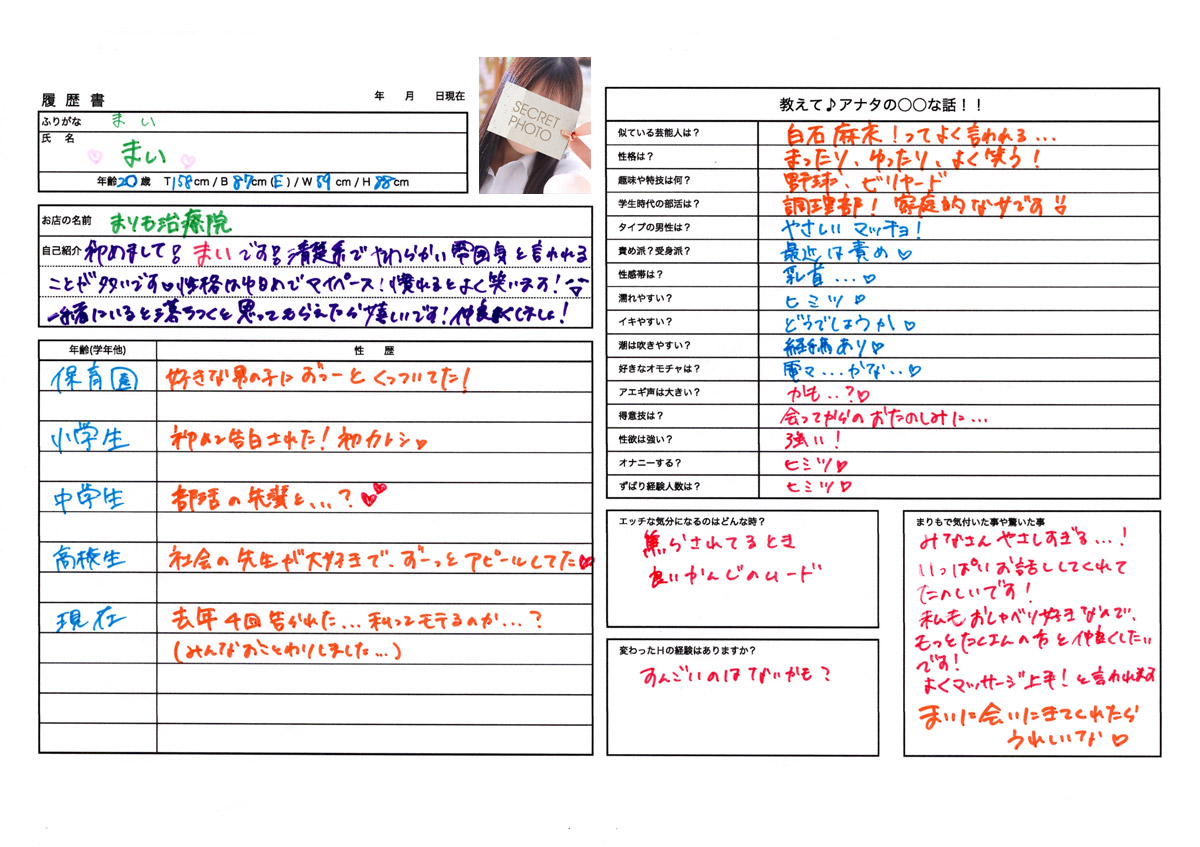 履歴書
年 月 日現在
ふりがな まい
氏 名
まい
年齢20歳 T158cm / B 87cm (E) / W 59 cm / H 88cm
SECRET
PHOTO
お店の名前 まりも治療院
自己紹介 初めまして! まいです! 清楚系でやわらかい雰囲気と言われる
ことが多いです 性格は中身でマイペース! 慣れるとよく笑います!
一緒にいると落ちつくと思ってもらえたら嬉しいです! 仲良くしましょ!
年齢(学年他) 性 歴
保育園 好きな男の子にずっーとくっついてた!
小学生 初めて告白された! 初カレシ♡
中学生 部活の先輩と...?
高校生 社会の先生が大好きで、ずーっとアピールしてた♡
現在 去年4回告られた... 私ってモテるのか...?
(みんなおことわりしました...)
教えて♪アナタの○○な話!!
似ている芸能人は? 白石麻衣!ってよく言われる...
性格は? まったり、ゆったり、よく笑う!
趣味や特技は何? 野球、ビリヤード
学生時代の部活は? 調理部! 家庭的な女です!!
タイプの男性は? やさしいマッチョ!
責め派?受身派? 最近は責め♡
性感帯は? 乳首...♡
濡れやすい? ヒミツ♡
イキやすい? どうでしょうか♡
潮は吹きやすい? 経験あり♡
好きなオモチャは? 電マ...かな..♡
アエギ声は大きい? かも..?♡
得意技は? 会ってからのおたのしみに...
性欲は強い? 強い!
オナニーする? ヒミツ♡
ずばり経験人数は? ヒミツ♡
エッチな気分になるのはどんな時?
焦らされてるとき
良いかんじのムード
変わったHの経験はありますか?
すんごいのはないかも?
まりもで気付いた事や驚いた事
みなさんやさしすぎる...!
いっぱいお話ししてくれて
たのしいです!
私もおしゃべり好きなので、
もっとたくさんの方と仲良くしたい
です!
よくマッサージ上手!と言われます
まいに会いにきてくれたら
うれしいな♡